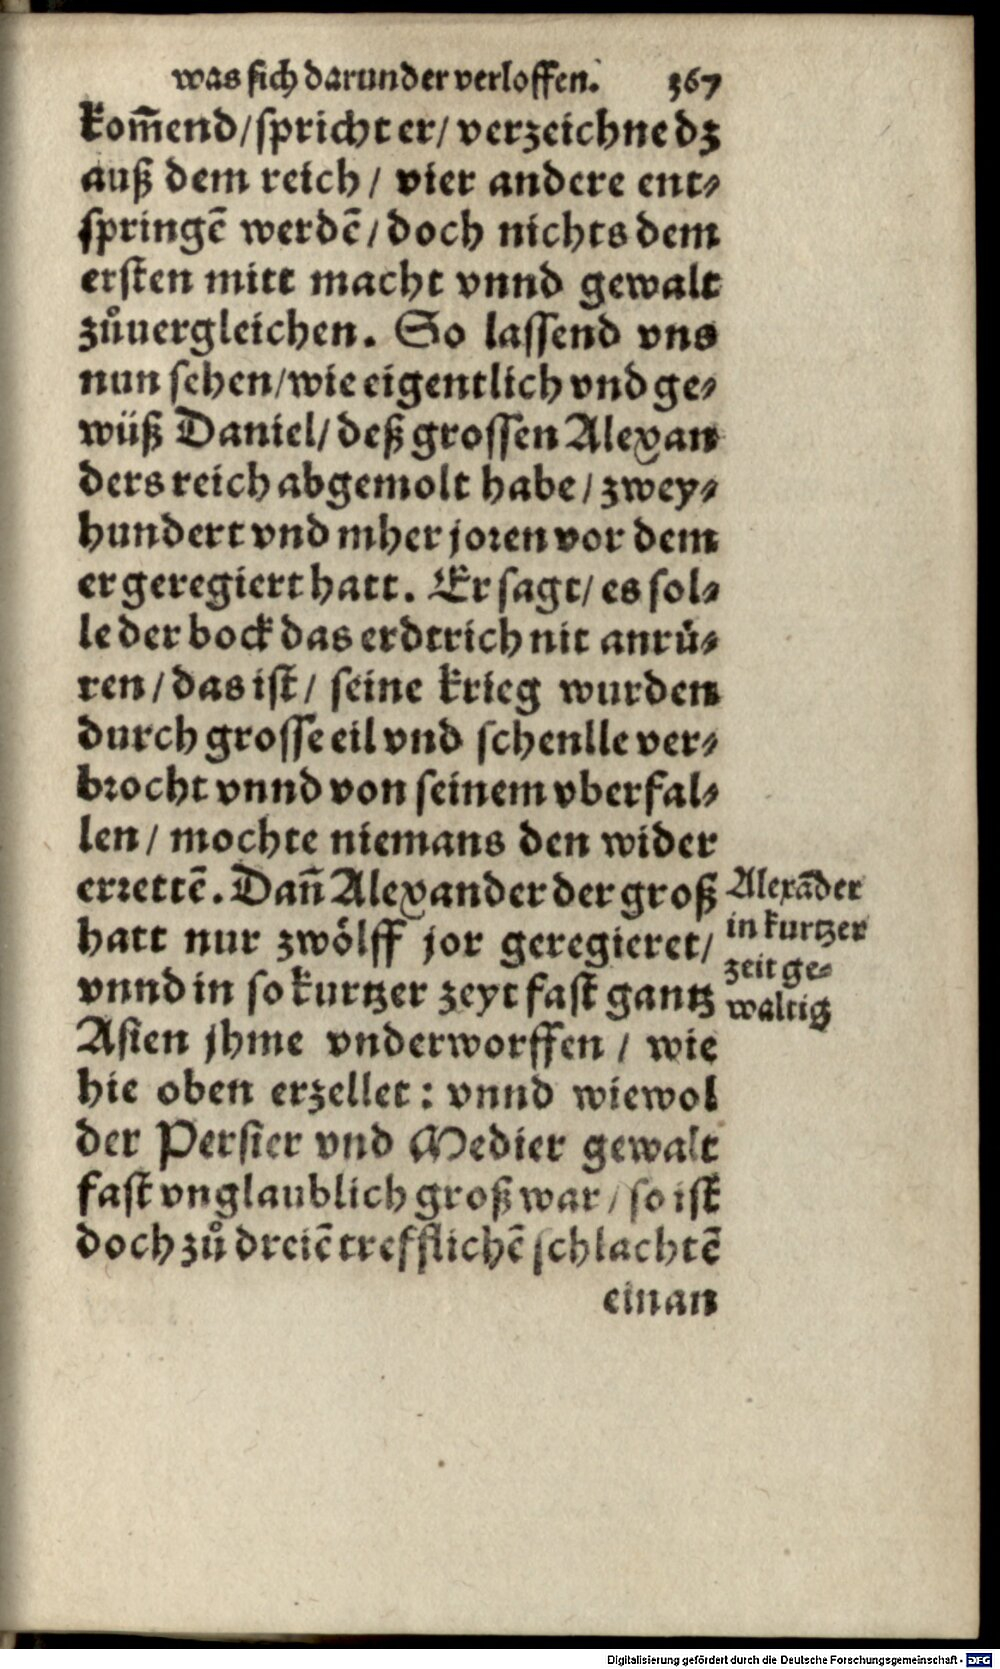 was sich darunder verloffen. 367
kom̃end/spricht er/ verzeichne dz
auß dem reich/ vier andere ent⸗
springẽ werdẽ/doch nichts dem
ersten mitt macht vnnd gewalt
zůuergleichen. So lassend vns
nun sehen/wie eigentlich vnd ge⸗
wüß Daniel/deß grossen Alexan
ders reich abgemolt habe/zwey⸗
hundert vnd mher joren vor dem
er geregiert hatt. Er sagt/es sol⸗
le der bock das erdtrich nit anrů⸗
ren/das ist/ seine krieg wurden
durch grosse eil vnd schenlle ver⸗
brocht vnnd von seinem vberfal⸗
len/ mochte niemans den wider
errettẽ. Dañ Alexander der groß
hatt nur zwölff jor geregieret/
vnnd in so kurtzer zeyt fast gantz
Asien jhme vnderworffen / wie
hie oben erzellet: vnnd wiewol
der Persier vnd Medier gewalt
fast vnglaublich groß war/so ist
doch zů dreiẽ trefflichẽ schlachtẽ
einan
Alexãder
in kurtzer
zeit ge⸗
waltig
Digitalisierung gefördert durch die Deutsche Forschungsgemeinschaft - DFG